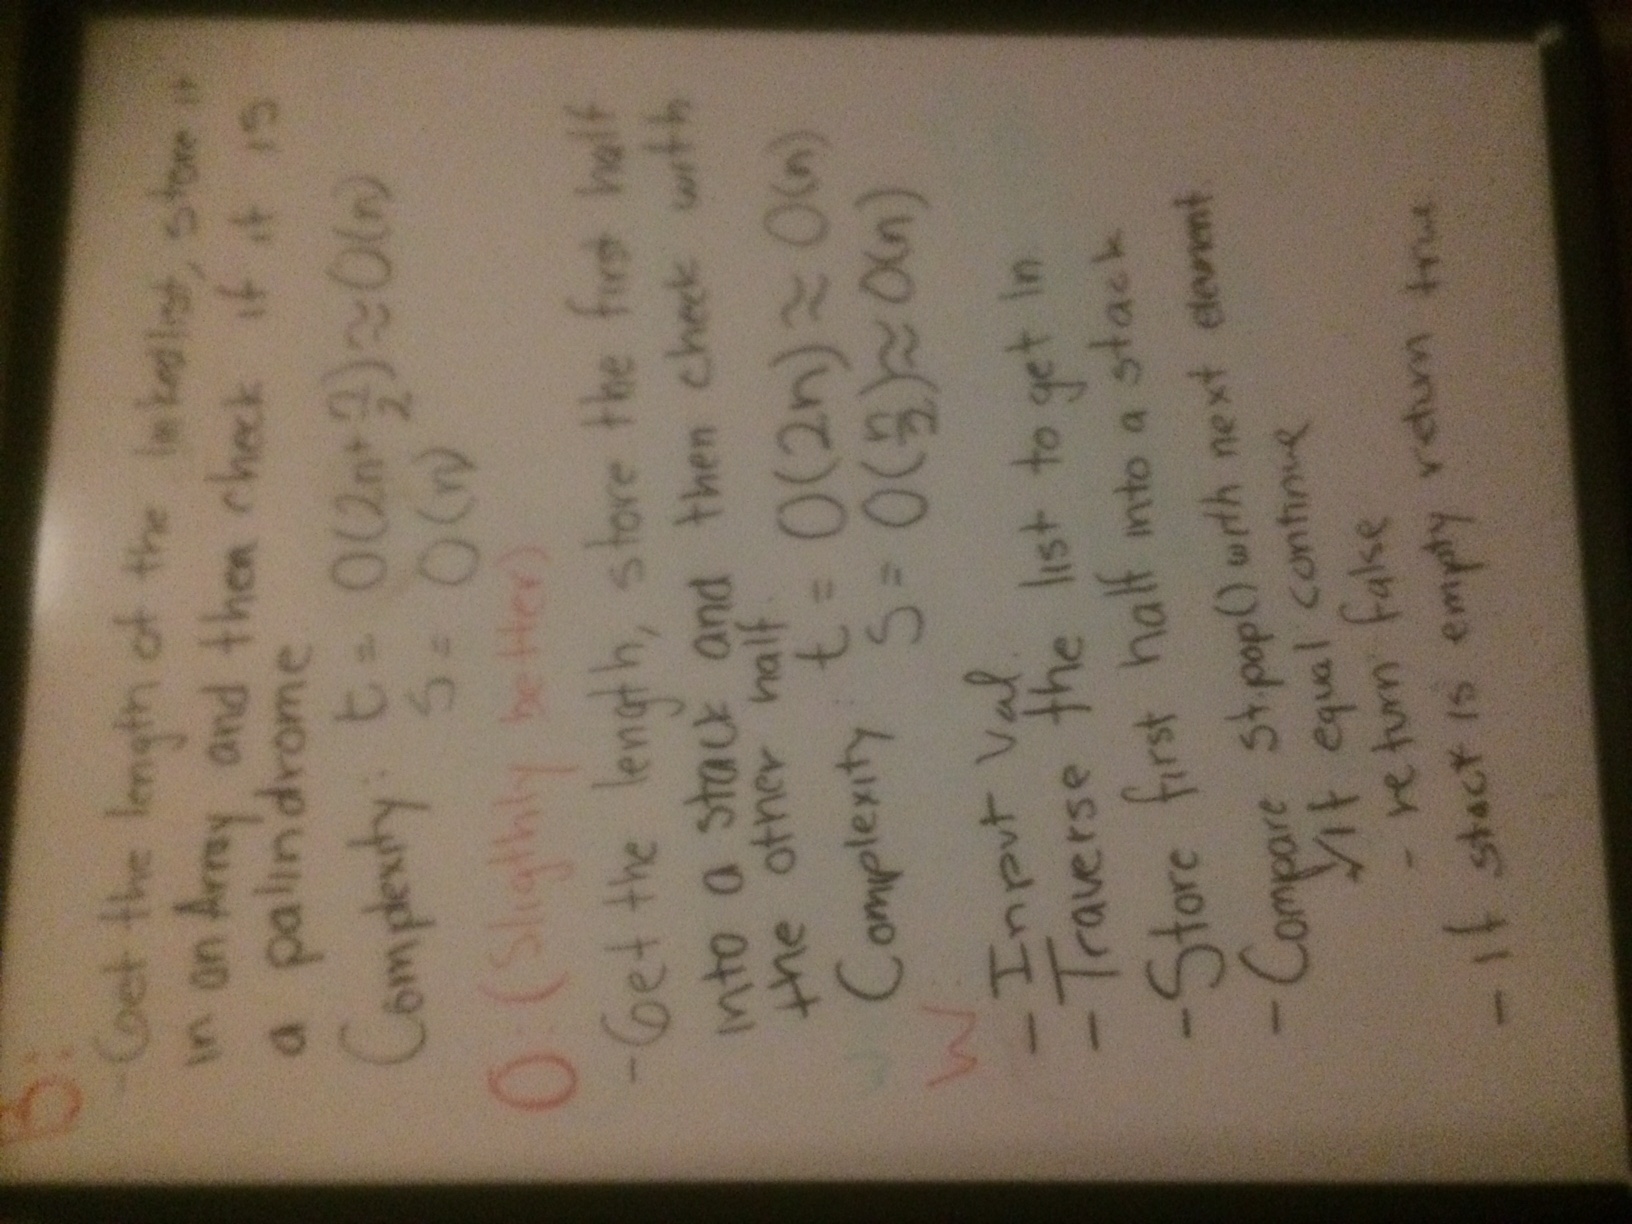 B:
- Get the length of the linkedlist, store it
in an Array and then check if it is
a palindrome
Complexity: t = O(2n+n/2)≈O(n)
S = O(n)
O: (Sligthly better)
- Get the length, store the first half
into a stack and then check with
the other half.
Complexity: t = O(2n) ≈ O(n)
S = O(n/2)≈ O(n)
W:
- Input Val.
- Traverse the list to get ln
- Store first half into a stack
- Compare st.pop() with next element.
✓if equal continue
- return false
- if stack is empty return true